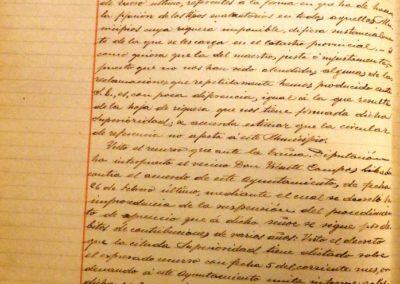 de Enero último, referentes á la forma en que ha de hacerse
la fijación de los tipos en todos aquellos Mu-
nicipios cuya riqueza imponible, difiera sustancialmen-
te de la que se les carga en el catastro provincial. - Y
como quiera que la del nuestro, justa ó injustamente,
puesto que no nos han sido atendidas algunas de las
reclamaciones que repetidamente hemos producido ante
S.E., es, con poca diferencia, igual á la que resulta
de la hoja de riqueza que nos tiene firmada dicha
Superioridad; se acuerda estimar que la circular
de referencia no afecta á este Municipio.
Visto el recurso que ante la Excma Diputación
ha interpuesto el vecino Don Campos
contra el acuerdo de este Ayuntamiento, de fecha
26 de Febrero último, mediante el cual se decretó la
improcedencia de la suspensión del procedimien-
to de apremio que á dicho señor se sigue por débi-
tos de contribuciones de varios años. Visto el decreto
que la citada Superioridad tiene dictado sobre
el expresado recurso con fecha 5 del corriente mes, or-
denando á este Ayuntamiento emita informe sobre